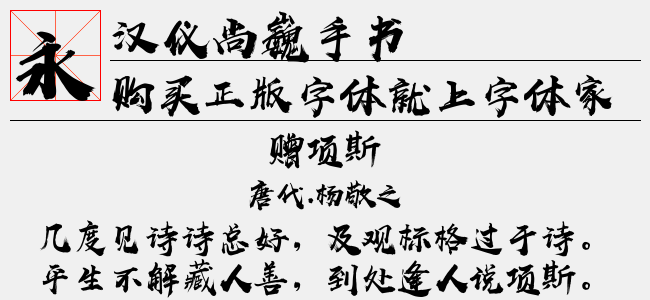 永
汉仪尚巍手书
购买正版字体就上字体家
赠项斯
唐代.杨敬之
几度见诗诗总好，及观标格过于诗。
平生不解藏人善，到处逢人说项斯。